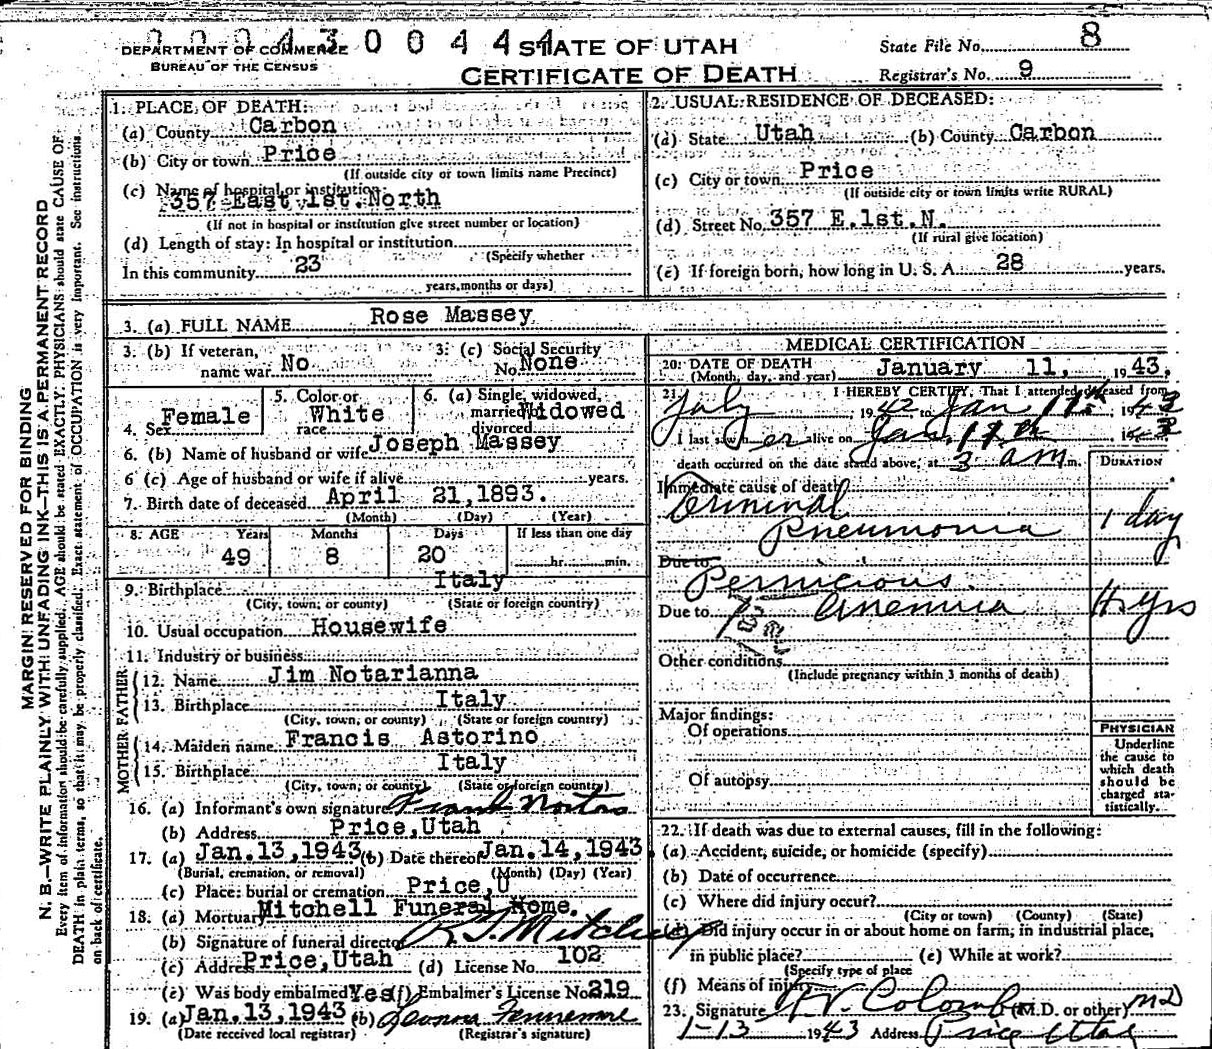 DEPARTMENT OF COMMERCE
BUREAU OF THE CENSUS
STATE OF UTAH
CERTIFICATE OF DEATH
State File No. 8
Registrar's No. 9
MARGIN RESERVED FOR BINDING
N. B.—WRITE PLAINLY WITH UNFADING INK—THIS IS A PERMANENT RECORD
Every item of information should be carefully supplied. AGE should be stated EXACTLY. PHYSICIANS should state CAUSE OF
DEATH in plain terms, so that it may be properly classified. Exact statement of OCCUPATION is very important. See instructions
on back of certificate.
1. PLACE OF DEATH:
(a) County Carbon
(b) City or town Price
(If outside city or town limits name Precinct)
(c) Name of hospital or institution:
357 East 1st. North
(If not in hospital or institution give street number or location)
(d) Length of stay: In hospital or institution
(Specify whether
In this community 23
years, months or days)
2. USUAL RESIDENCE OF DECEASED:
(a) State Utah (b) County Carbon
(c) City or town Price
(If outside city or town limits write RURAL)
(d) Street No. 357 E.1st.N.
(If rural give location)
(e) If foreign born, how long in U. S. A. 28 years.
3. (a) FULL NAME Rose Massey
3. (b) If veteran, name war No
3. (c) Social Security No. None
4. Sex Female
5. Color or race White
6. (a) Single, widowed, married, divorced Widowed
6. (b) Name of husband or wife Joseph Massey
6 (c) Age of husband or wife if alive years.
7. Birth date of deceased April 21,1893.
(Month) (Day) (Year)
8. AGE Years Months Days If less than one day
49 8 20 hr. min.
9. Birthplace Italy
(City, town, or county) (State or foreign country)
10. Usual occupation Housewife
11. Industry or business
FATHER
12. Name Jim Notarianna
13. Birthplace Italy
(City, town, or county) (State or foreign country)
MOTHER
14. Maiden name Francis Astorino
15. Birthplace Italy
(City, town, or county) (State or foreign country)
16. (a) Informant's own signature Frank
(b) Address Price,Utah
17. (a) Jan.13,1943 (b) Date thereof Jan.14,1943
(Burial, cremation, or removal) (Month) (Day) (Year)
(c) Place: burial or cremation Price,U
18. (a) Mortuary Mitchell Funeral Home.
(b) Signature of funeral director Mitchell
(c) Address Price,Utah (d) License No. 102
(e) Was body embalmed Yes (f) Embalmer's License No. 219
19. (a) Jan.13,1943 (b)
(Date received local registrar) (Registrar's signature)
MEDICAL CERTIFICATION
20. DATE OF DEATH January 11, 1943.
(Month, day, and year)
21. I HEREBY CERTIFY, That I attended deceased from
July 1942 to Jan 11th 1943
I last saw her alive on Jan. 1943
death occurred on the date stated above, at 3 a m m.
DURATION
Immediate cause of death
Terminal
Pneumonia 1 day
Due to
Pernicious
Due to Anemia yrs
Other conditions
(Include pregnancy within 3 months of death)
Major findings:
Of operations
Of autopsy
PHYSICIAN
Underline
the cause to
which death
should be
charged sta-
tistically.
22. If death was due to external causes, fill in the following:
(a) Accident, suicide, or homicide (specify)
(b) Date of occurrence
(c) Where did injury occur?
(City or town) (County) (State)
Did injury occur in or about home on farm, in industrial place,
in public place? (e) While at work?
(Specify type of place
(f) Means of injury
23. Signature Colombo (M.D. or other) MD
1-13 1943 Address Price Utah